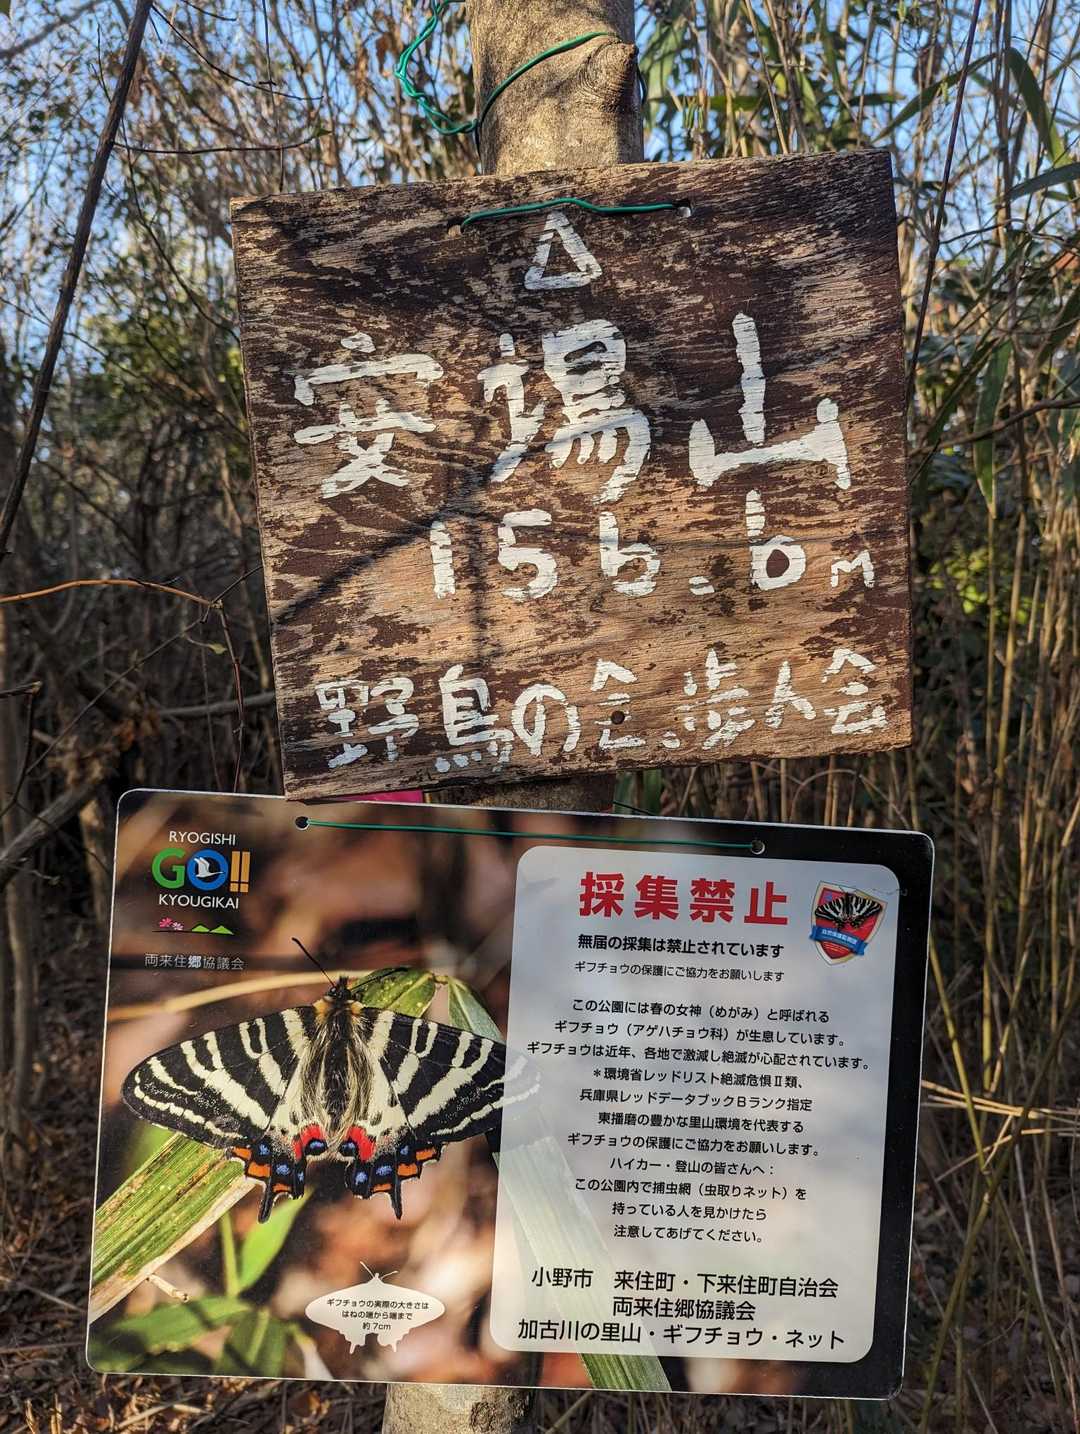 安場山
156.6m
野鳥の会.歩人会
RYOGISHI
GO!!
KYOUGIKAI
両来住郷協議会
採集禁止
無届の採集は禁止されています
ギフチョウの保護にご協力をお願いします
この公園には春の女神（めがみ）と呼ばれる
ギフチョウ（アゲハチョウ科）が生息しています。
ギフチョウは近年、各地で激減し絶滅が心配されています。
＊環境省レッドリスト絶滅危惧Ⅱ類、
兵庫県レッドデータブックＢランク指定
東播磨の豊かな里山環境を代表する
ギフチョウの保護にご協力をお願いします。
ハイカー・登山の皆さんへ：
この公園内で捕虫網（虫取りネット）を
持っている人を見かけたら
注意してあげてください。
小野市　来住町・下来住町自治会
両来住郷協議会
加古川の里山・ギフチョウ・ネット
ギフチョウの実際の大きさは
はねの端から端まで
約7cm